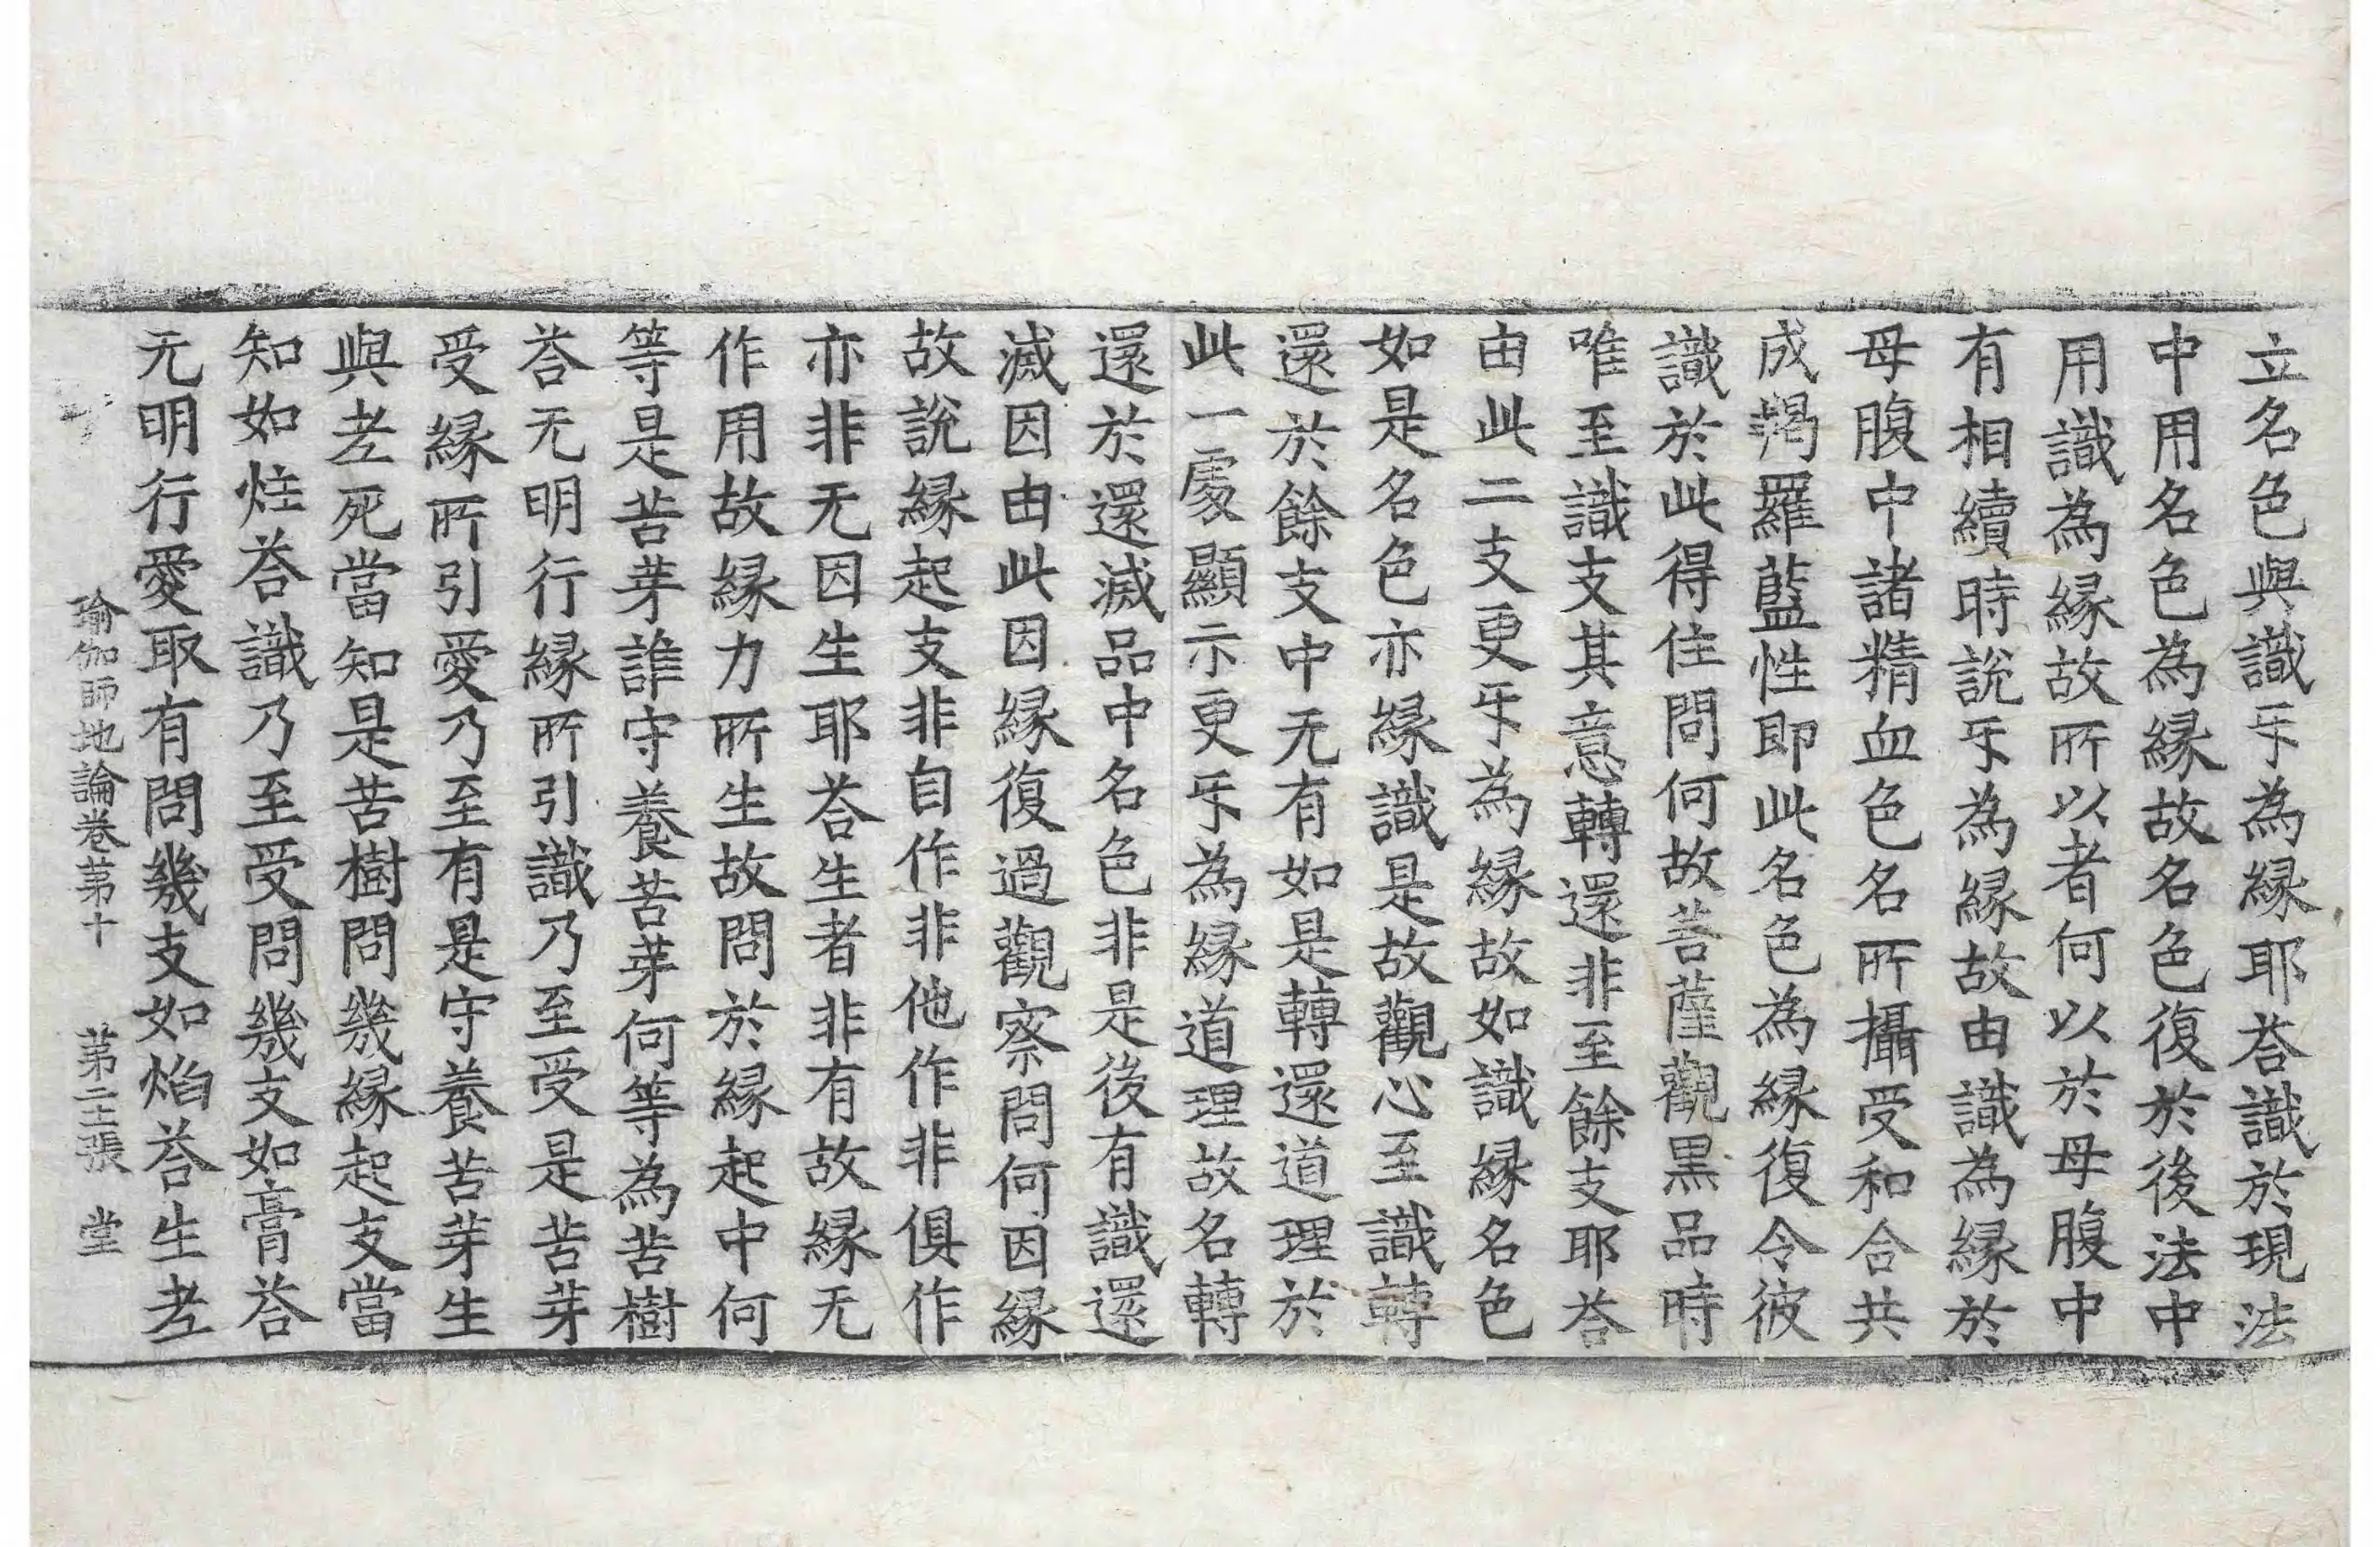 立名色與識㸦為縁耶荅識於現法
中用名色為縁故名色復於後法中
用識為縁故所以者何以於母腹中
有相續時說㸦為縁故由識為縁於
母腹中諸精血色名所攝受和合共
成羯羅藍性即此名色為縁復令彼
識於此得住問何故菩薩觀黒品時
唯至識支其意轉還非至餘支耶荅
由此二支更㸦為縁故如識縁名色
如是名色亦縁識是故觀心至識轉
還於餘支中无有如是轉還道理於
此一處顯示更㸦為縁道理故名轉
還於還滅品中名色非是後有識還
滅因由此因縁復過觀察問何因縁
故說縁起支非自作非他作非俱作
亦非无因生耶荅生者非有故縁无
作用故縁力所生故問於縁起中何
等是苦芽誰守養苦芽何等為苦樹
荅无明行縁所引識乃至受是苦芽
受縁所引愛乃至有是守養苦芽生
與老死當知是苦樹問幾縁起支當
知如炷荅識乃至受問幾支如膏荅
无明行愛取有問幾支如焰荅生老
瑜伽師地論卷苐十 苐二十張 堂